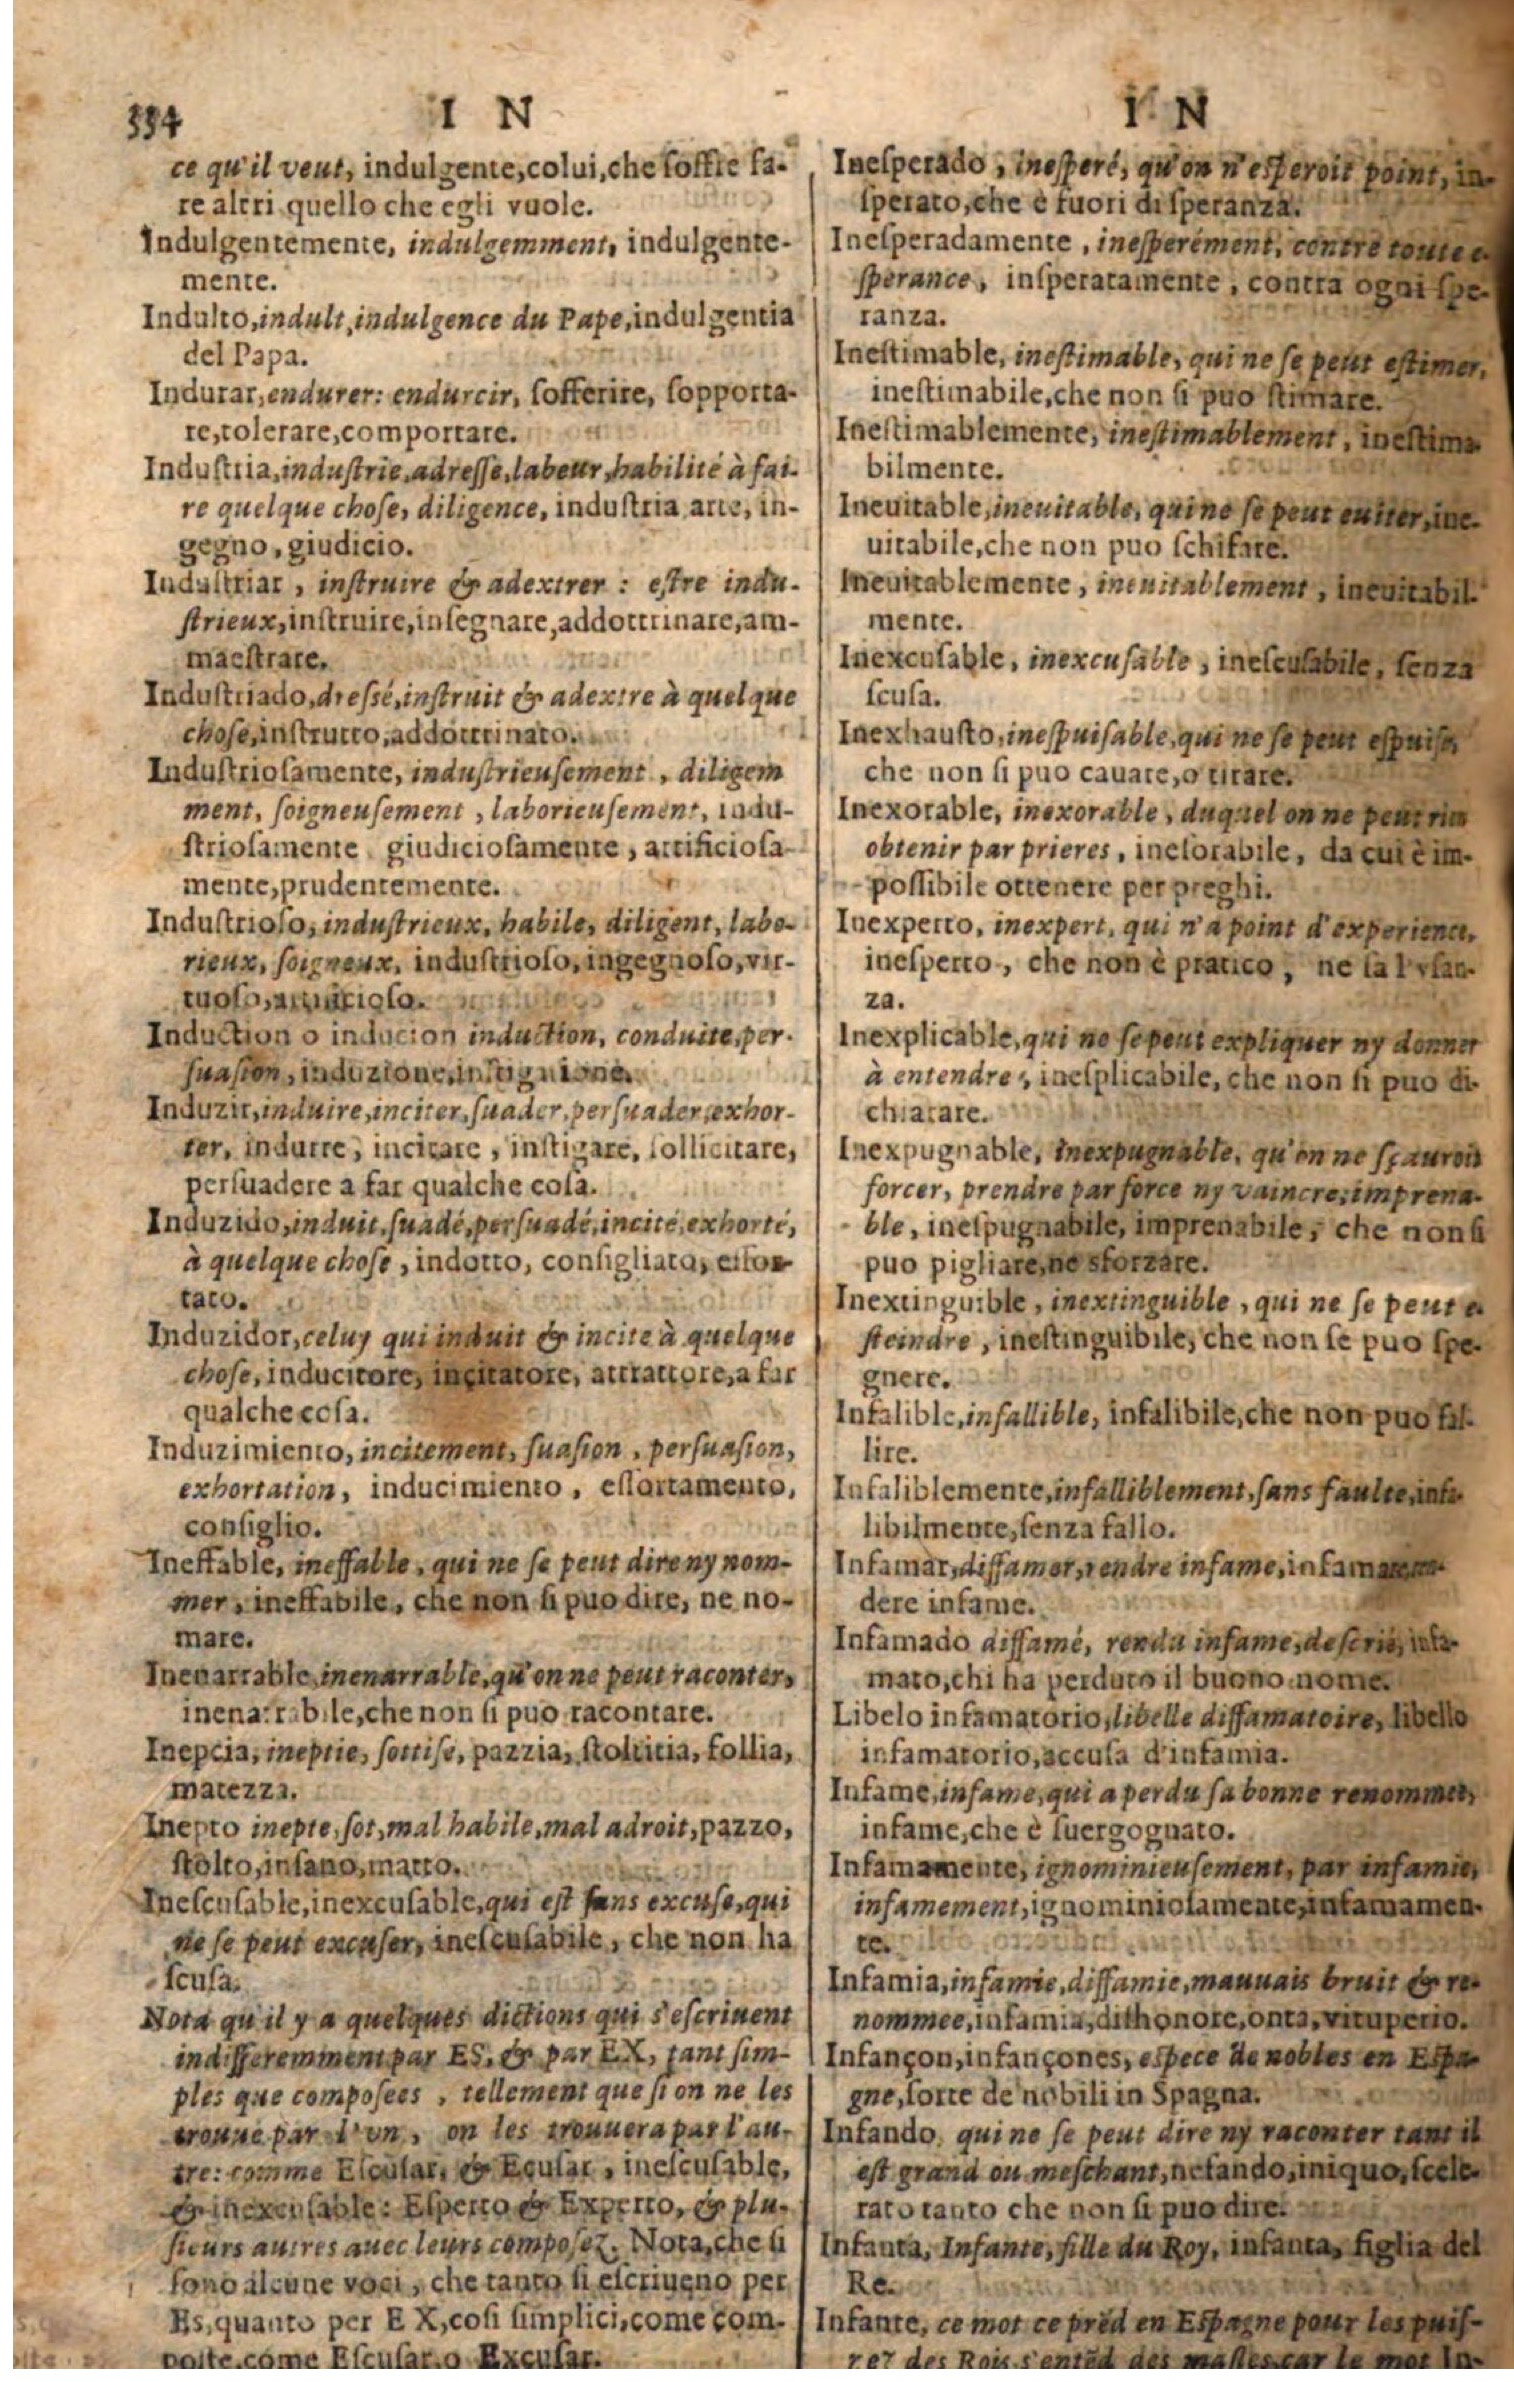 334
I N
ce qu'il veut, indulgente,colui,che soffre fa-
re altri quello che egli vuole.
Indulgentemente, indulgemment, indulgente-
mente.
Indulto,indult,indulgence du Pape,indulgentia
del Papa.
Indurar,endurer: endurcir, sofferire, sopporta-
re,tolerare,comportare.
Industria,industrie,adresse,labeur,habilité à fai-
re quelque chose, diligence, industria arte, in-
gegno, giudicio.
Industriar, instruire & adextrer : estre indu-
strieux,instruire,insegnare,addottrinare,am-
maestrare.
Industriado,dressé,instruit & adextre à quelque
chose,instrutto,addottrinato.
Industriosamente, industrieusement, diligem
ment, soigneusement, laborieusement, indu-
striosamente giudiciosamente, artificiosa-
mente,prudentemente.
Industrioso, industrieux, habile, diligent, labo-
rieux, soigneux, industrioso, ingegnoso, vir-
tuoso,artificioso.
Induction o inducion induction, conduite,per-
suasion, induzione,instigatione.
Induzir,induire,inciter,suader,persuader,exhor-
ter, indurre, incitare, instigare, sollicitare,
persuadere a far qualche cosa.
Induzido,induit,suadé,persuadé,incité,exhorté,
à quelque chose, indotto, consigliato, essor-
tato.
Induzidor,celuy qui induit & incite à quelque
chose, inducitore, incitatore, attrattore,a far
qualche cosa.
Induzimiento, incitement, suasion, persuasion,
exhortation, inducimiento, essortamento,
consiglio.
Ineffable, ineffable, qui ne se peut dire ny nom-
mer, ineffabile, che non si puo dire, ne no-
mare.
Inenarrable,inenarrable,qu'on ne peut raconter,
inenarrabile,che non si puo racontare.
Inepcia, ineptie, sottise, pazzia, stoltitia, follia,
matezza.
Inepto inepte,sot,mal habile,mal adroit,pazzo,
stolto,insano,matto.
Inescusable,inexcusable,qui est sans excuse,qui
ne se peut excuser, inescusabile, che non ha
scusa.
Nota qu'il y a quelques dictions qui s'escriuent
indifferemment par ES, & par EX, tant sim-
ples que composees, tellement que si on ne les
trouue par l'vn, on les trouuera par l'au-
tre: comme Escusar, & Ecusar, inescusable,
& inexcusable: Esperto & Experto, & plu-
sieurs autres auec leurs composez. Nota,che si
sono alcune voci, che tanto si escriueno per
Es,quanto per E X,cosi simplici,come com-
poste,come Escusar,o Excusar.
I N
Inesperado, inesperé, qu'on n'esperoit point, in-
sperato,che è fuori di speranza.
Inesperadamente, inesperément, contre toute e-
sperance, insperatamente, contra ogni spe-
ranza.
Inestimable, inestimable, qui ne se peut estimer,
inestimabile,che non si puo stimare.
Inestimablemente, inestimablement, inestima-
bilmente.
Ineuitable,ineuitable, qui ne se peut euiter,ine-
uitabile,che non puo schifare.
Ineuitablemente, ineuitablement, ineuitabil-
mente.
Inexcusable, inexcusable, inescusabile, senza
scusa.
Inexhausto,inespuisable,qui ne se peut espuiser,
che non si puo cauare,o tirare.
Inexorable, inexorable, duquel on ne peut rien
obtenir par prieres, inesorabile, da cui è im-
possibile ottenere per preghi.
Inexperto, inexpert, qui n'a point d'experience,
inesperto, che non è pratico, ne sa l'vsan-
za.
Inexplicable,qui ne se peut expliquer ny donner
à entendre, inesplicabile, che non si puo di-
chiarare.
Inexpugnable, inexpugnable, qu'on ne sçauroit
forcer, prendre par force ny vaincre,imprena-
ble, inespugnabile, imprenabile, che non si
puo pigliare,ne sforzare.
Inextinguible, inextinguible, qui ne se peut e-
steindre, inestinguibile, che non se puo spe-
gnere.
Infalible,infallible, infalibile,che non puo fal-
lire.
Infaliblemente,infalliblement,sans faulte,infa-
libilmente,senza fallo.
Infamar,diffamer,rendre infame,infamare,ren-
dere infame.
Infamado diffamé, rendu infame,descrié, infa-
mato,chi ha perduto il buono nome.
Libelo infamatorio,libelle diffamatoire, libello
infamatorio,accusa d'infamia.
Infame,infame,qui a perdu sa bonne renommee,
infame,che è suergognato.
Infamamente, ignominieusement, par infamie,
infamement,ignominiosamente,infamamen-
te.
Infamia,infamie,diffamie,mauuais bruit & re-
nommee,infamia,dishonore,onta,vituperio.
Infançon,infançones, espece de nobles en Espa-
gne,sorte de nobili in Spagna.
Infando, qui ne se peut dire ny raconter tant il
est grand ou meschant,nefando,iniquo,scele-
rato tanto che non si puo dire.
Infanta, Infante, fille du Roy, infanta, figlia del
Re.
Infante, ce mot ce prẽd en Espagne pour les puis-
rez des Rois,s'entẽd des masles,car le mot In-